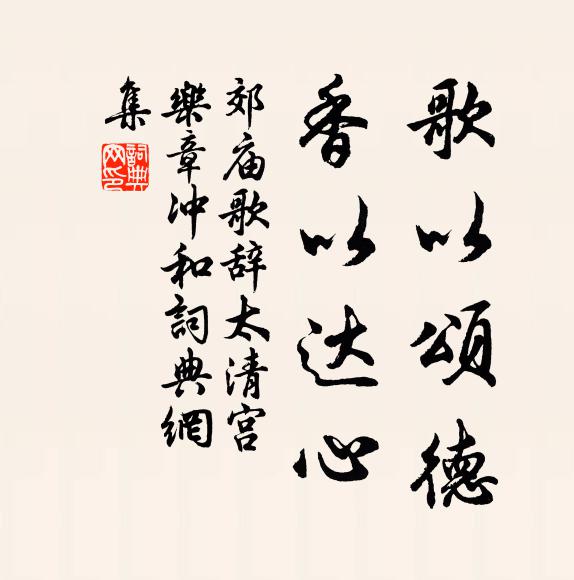 歌以頌德
香以达心
郊庙歌辞太清宫
樂章冲和詞典網
集
詞典网印